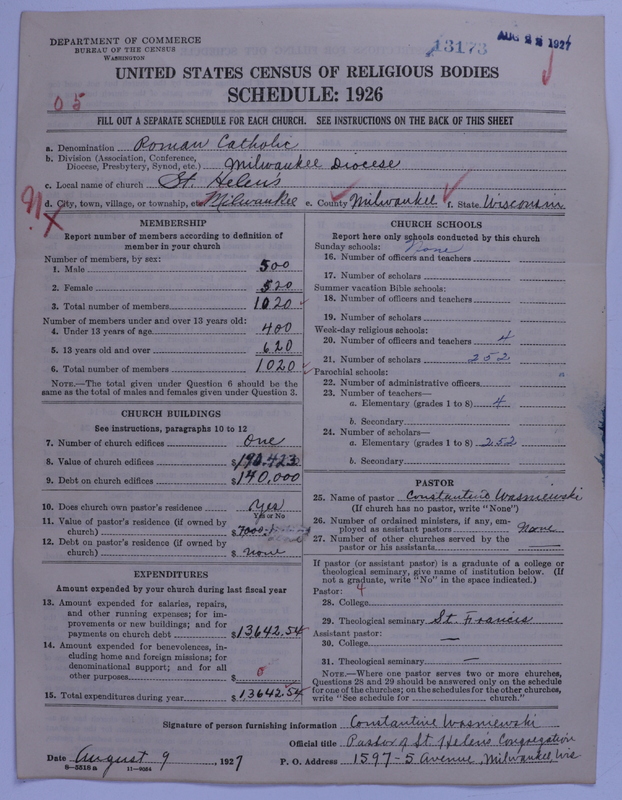 DEPARTMENT OF COMMERCE
BUREAU OF THE CENSUS
WASHINGTON
13173
AUG 22 1927
UNITED STATES CENSUS OF RELIGIOUS BODIES
SCHEDULE: 1926
05
FILL OUT A SEPARATE SCHEDULE FOR EACH CHURCH. SEE INSTRUCTIONS ON THE BACK OF THIS SHEET
a. Denomination Roman Catholic
b. Division (Association, Conference,
Diocese, Presbytery, Synod, etc.) Milwaukee Diocese
c. Local name of church St. Helen's
d. City, town, village, or township, etc. Milwaukee e. County Milwaukee f. State Wisconsin
MEMBERSHIP
Report number of members according to definition of
member in your church
Number of members, by sex:
1. Male 500
2. Female 520
3. Total number of members 1020
Number of members under and over 13 years old:
4. Under 13 years of age 400
5. 13 years old and over 620
6. Total number of members 1020
NOTE.—The total given under Question 6 should be the
same as the total of males and females given under Question 3.
CHURCH BUILDINGS
See instructions, paragraphs 10 to 12
7. Number of church edifices one
8. Value of church edifices $190.423
9. Debt on church edifices $140,000
10. Does church own pastor's residence Yes
Yes or No
11. Value of pastor's residence (if owned by
church) $7000.
12. Debt on pastor's residence (if owned by
church) $ none
EXPENDITURES
Amount expended by your church during last fiscal year
13. Amount expended for salaries, repairs,
and other running expenses; for im-
provements or new buildings; and for
payments on church debt $13642.54
14. Amount expended for benevolences, in-
cluding home and foreign missions; for
denominational support; and for all
other purposes $ 0
15. Total expenditures during year $13642.54
CHURCH SCHOOLS
Report here only schools conducted by this church
Sunday schools: None
16. Number of officers and teachers
17. Number of scholars
Summer vacation Bible schools:
18. Number of officers and teachers
19. Number of scholars
Week-day religious schools:
20. Number of officers and teachers 4
21. Number of scholars 252
Parochial schools:
22. Number of administrative officers
23. Number of teachers—
a. Elementary (grades 1 to 8) 4
b. Secondary
24. Number of scholars—
a. Elementary (grades 1 to 8) 252
b. Secondary
PASTOR
25. Name of pastor Constantino Wasniewski
(If church has no pastor, write "None")
26. Number of ordained ministers, if any, em-
ployed as assistant pastors None
27. Number of other churches served by the
pastor or his assistants
If pastor (or assistant pastor) is a graduate of a college or
theological seminary, give name of institution below. (If
not a graduate, write "No" in the space indicated.)
Pastor: 4
28. College
29. Theological seminary St. Francis
Assistant pastor:
30. College —
31. Theological seminary —
NOTE.—Where one pastor serves two or more churches,
Questions 28 and 29 should be answered only on the schedule
for one of the churches; on the schedules for the other churches,
write "See schedule for church."
Signature of person furnishing information Constantine Wasniewski
Official title Pastor of St. Helen's Congregation
Date August 9, 1927 P. O. Address 1597-5 Avenue, Milwaukee, Wis
8-5518a 11-9034